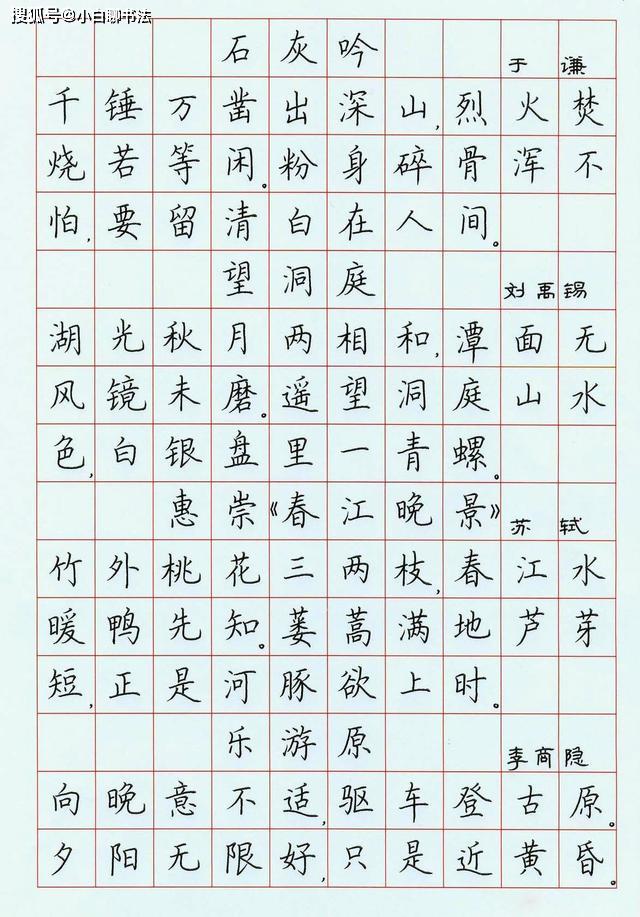 搜狐号@小白聊书法
石灰吟 于谦
千锤万凿出深山,烈火焚
烧若等闲。粉身碎骨浑不
怕,要留清白在人间。
望洞庭 刘禹锡
湖光秋月两相和,潭面无
风镜未磨。遥望洞庭山水
色,白银盘里一青螺。
惠崇《春江晚景》 苏轼
竹外桃花三两枝,春江水
暖鸭先知。蒌蒿满地芦芽
短,正是河豚欲上时。
乐游原 李商隐
向晚意不适,驱车登古原。
夕阳无限好,只是近黄昏。